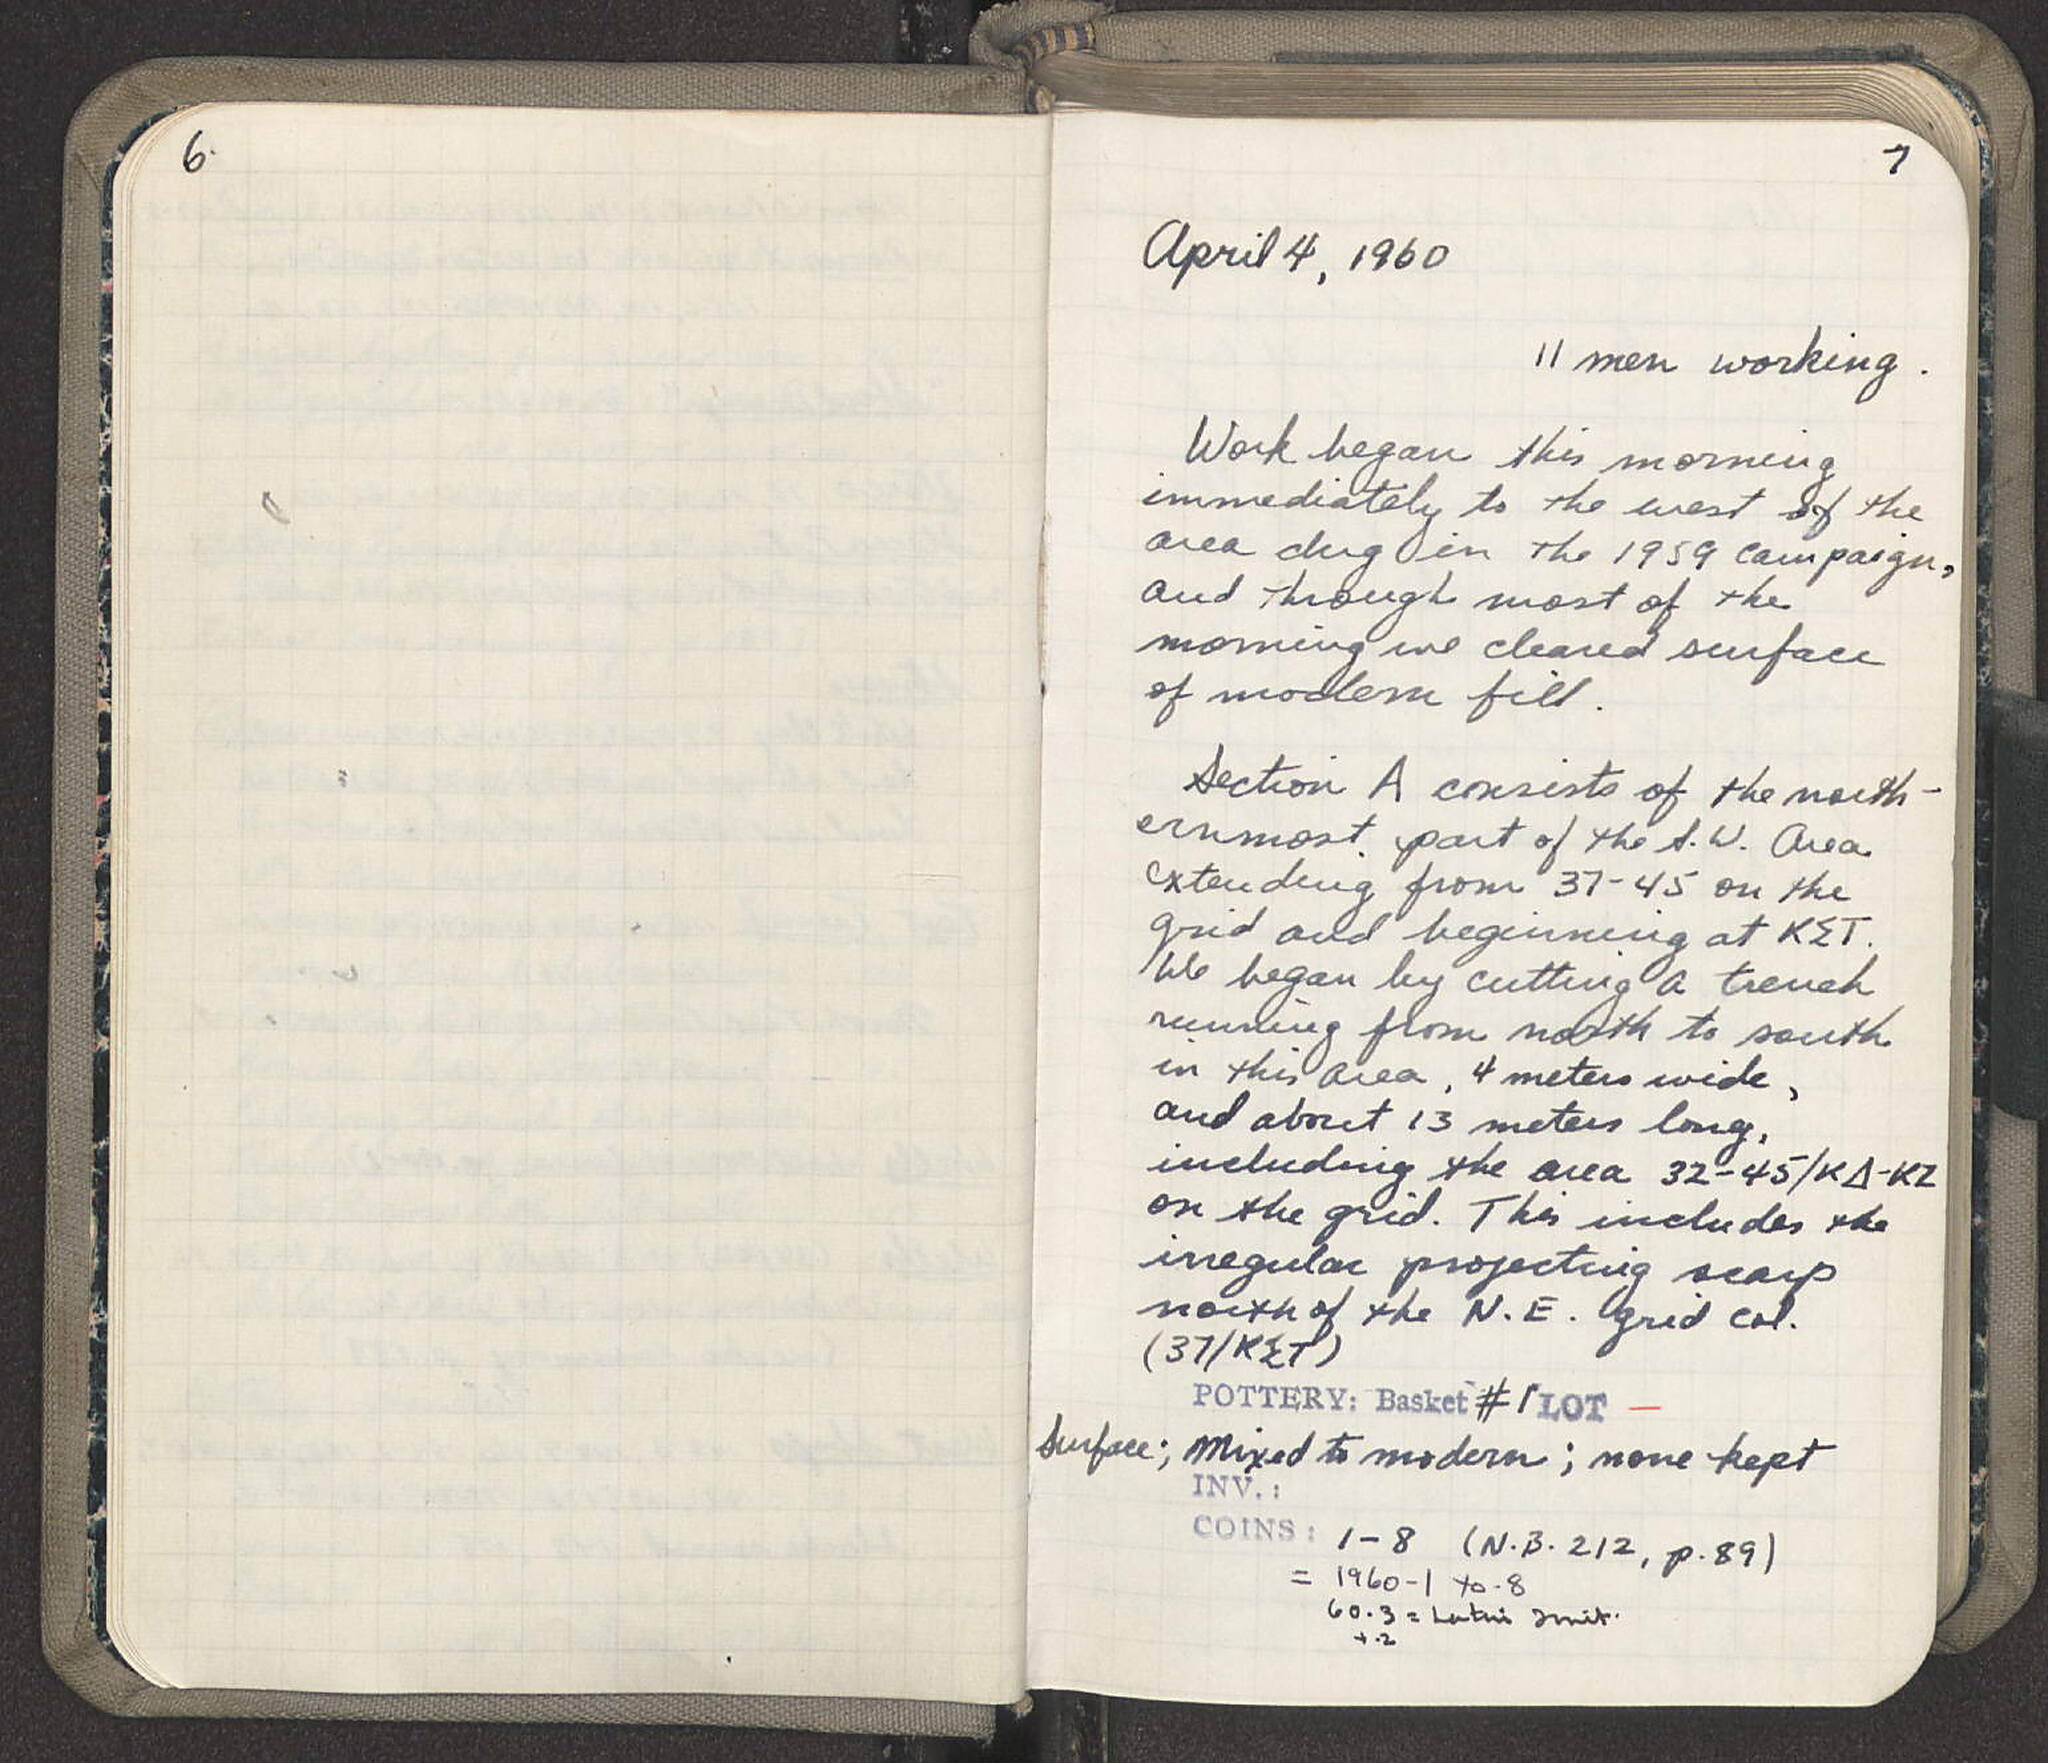 6.
7
April 4, 1960
11 men working.
Work began this morning
immediately to the west of the
area dug in the 1959 campaign,
and through most of the
morning we cleared surface
of modern fill.
Section A consists of the north-
ernmost part of the S.W. Area
extending from 37-45 on the
grid and beginning at KΣT.
We began by cutting a trench
running from north to south
in this area, 4 meters wide,
and about 13 meters long,
including the area 32-45/KΔ-KZ
on the grid. This includes the
irregular projecting scarp
north of the N.E. grid col.
(37/KΣT)
POTTERY: Basket #1 LOT —
Surface; Mixed to modern; none kept
INV.:
COINS: 1-8 (N.B. 212, p.89)
= 1960-1 to -8
60.3 = Latin Imit.
+.2